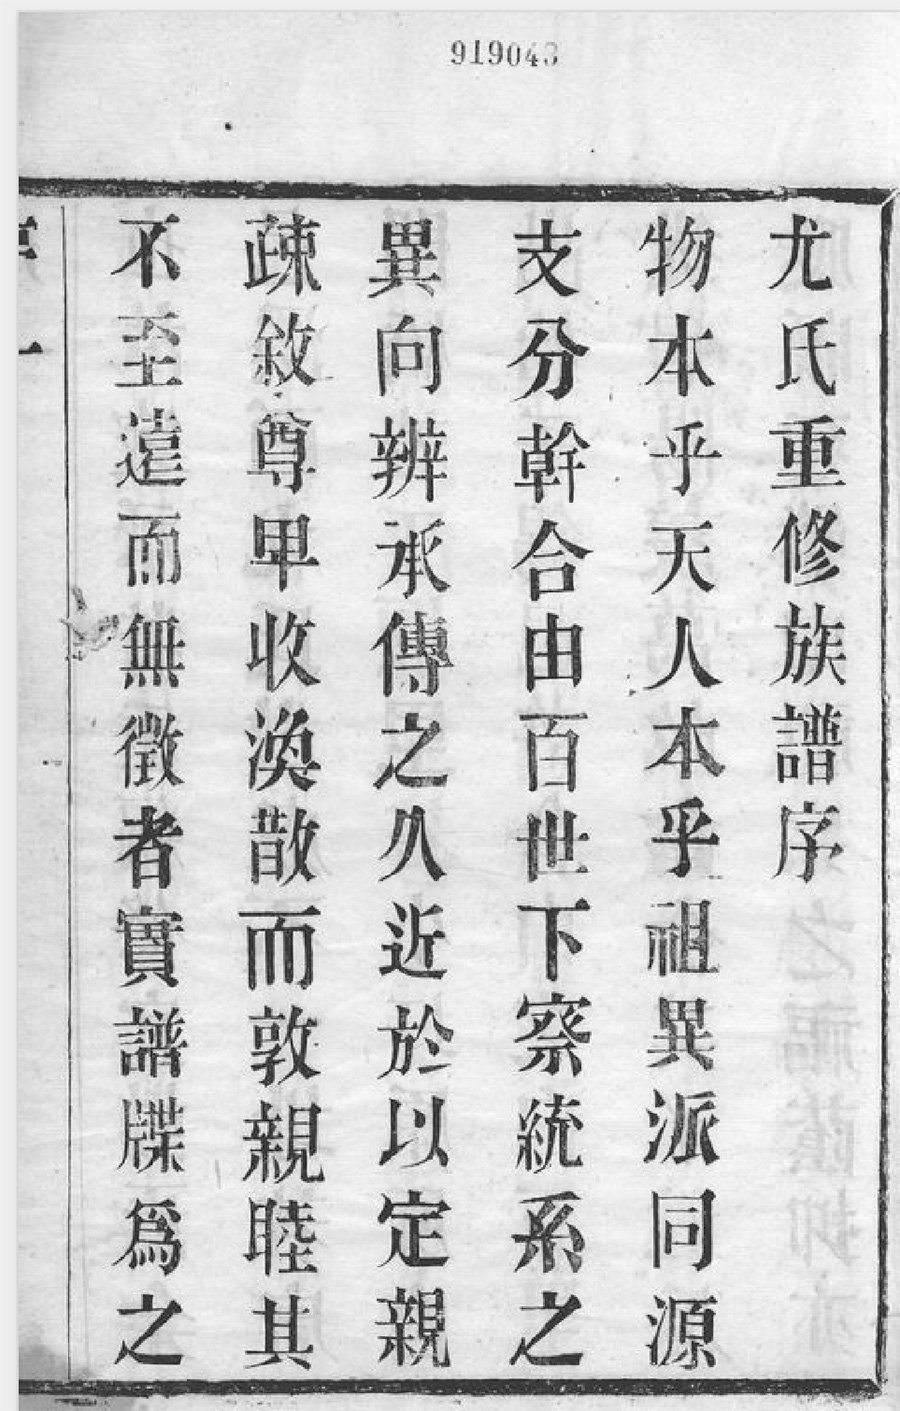 919043
尤氏重修族譜序
物本乎天人本乎祖異派同源
支分幹合由百世下察統系之
異向辨承傳之久近於以定親
疎敘尊卑收渙散而敦親睦其
不至遠而無徵者實譜牒爲之